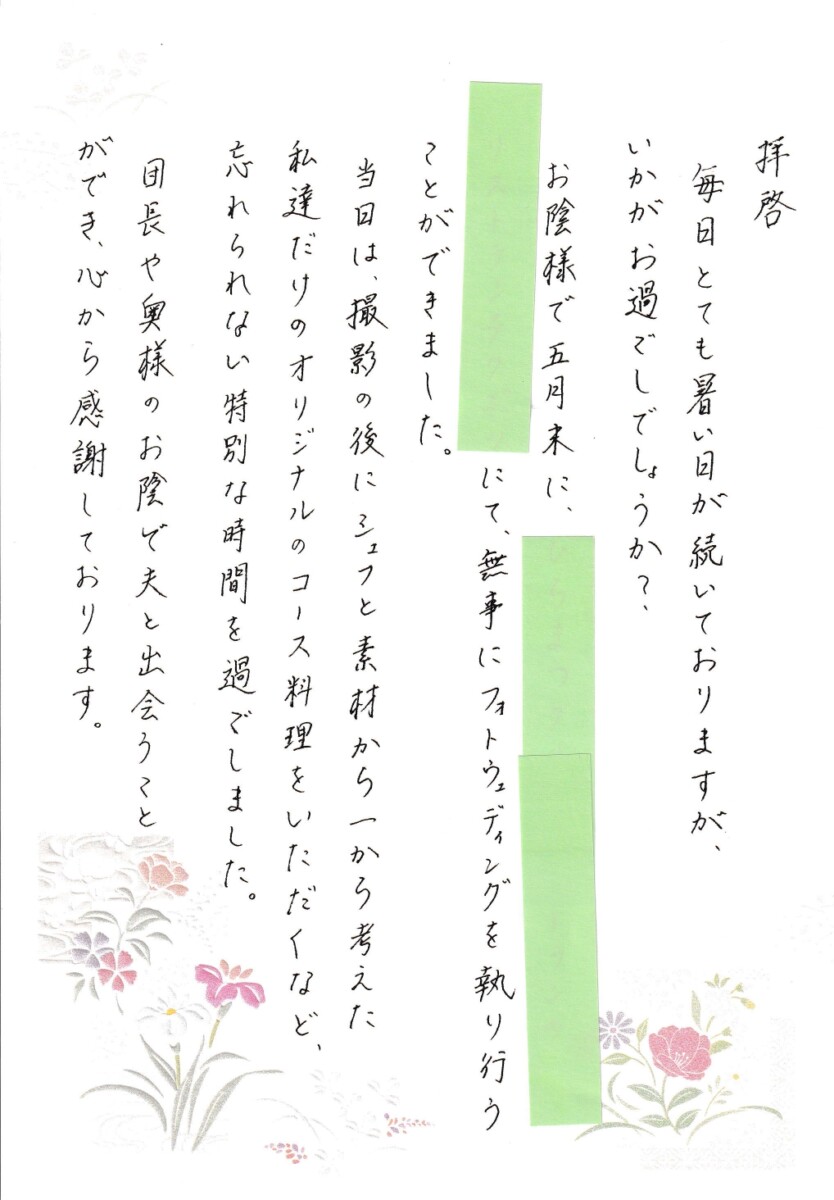 拝啓
毎日とても暑い日が続いておりますが、
いかがお過ごしでしょうか？、
お陰様で五月末に、
にて、無事にフォトウェディングを執り行う
ことができました。
当日は、撮影の後にシェフと素材から一から考えた
私達だけのオリジナルのコース料理をいただくなど、
忘れられない特別な時間を過ごしました。
団長や奥様のお陰で夫と出会うこと
ができ、心から感謝しております。